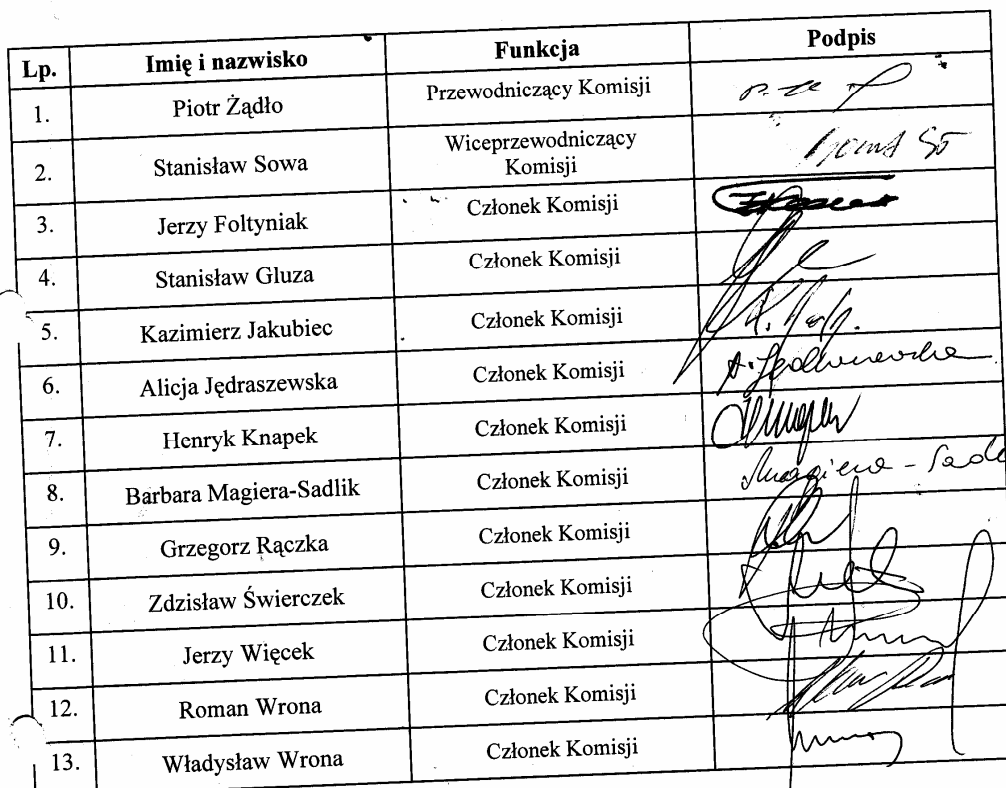 Lp. Imię i nazwisko Funkcja Podpis
1. Piotr Żądło Przewodniczący Komisji
2. Stanisław Sowa Wiceprzewodniczący
Komisji
3. Jerzy Foltyniak Członek Komisji
4. Stanisław Gluza Członek Komisji
5. Kazimierz Jakubiec Członek Komisji
6. Alicja Jędraszewska Członek Komisji
7. Henryk Knapek Członek Komisji
8. Barbara Magiera-Sadlik Członek Komisji Magiera-Sadl
9. Grzegorz Rączka Członek Komisji
10. Zdzisław Świerczek Członek Komisji
11. Jerzy Więcek Członek Komisji
12. Roman Wrona Członek Komisji
13. Władysław Wrona Członek Komisji